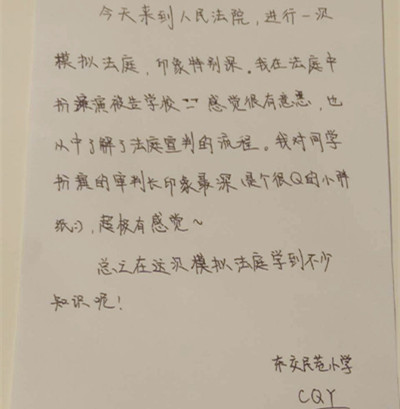 今天来到人民法院，进行一次
模拟法庭，印象特别深。我在法庭中
扮演被告学校 感觉很有意思，也
从中了解了法庭宣判的流程。我对同学
扮演的审判长印象最深（是个很Q的小胖
纸），超级有感觉~
总之在这次模拟法庭学到不少
知识呢！
东交民巷小学
CQY